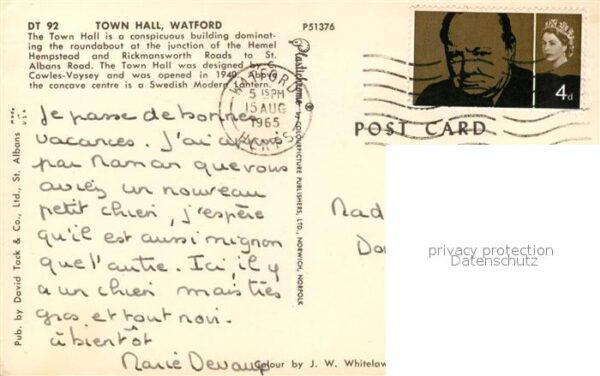 DT 92 TOWN HALL, WATFORD
The Town Hall is a conspicuous building dominat-
ing the roundabout at the junction of the Hemel
Hempstead and Rickmansworth Roads to St.
Albans Road. The Town Hall was designed by C.
Cowles-Voysey and was opened in 1940. Above
the concave centre is a Swedish Modern Lantern.
P51376
4d
WATFORD
5 15PM
15 AUG
1965
HERTS
POST CARD
Je passe de bonnes
vacances. J'ai appris
par Maman que vous
aviez un nouveau
petit chien, j'espère
qu'il est aussi mignon
que l'autre. Ici, il y
a un chien mais très
gros et tout noir.
à bientôt
Marie
Pub. by David Tock & Co., Ltd., St. Albans
Plastichrome ® by COLOURPICTURE PUBLISHERS, LTD., NORWICH, NORFOLK
Mad
privacy protection
Datenschutz
Colour by J. W. Whitelaw